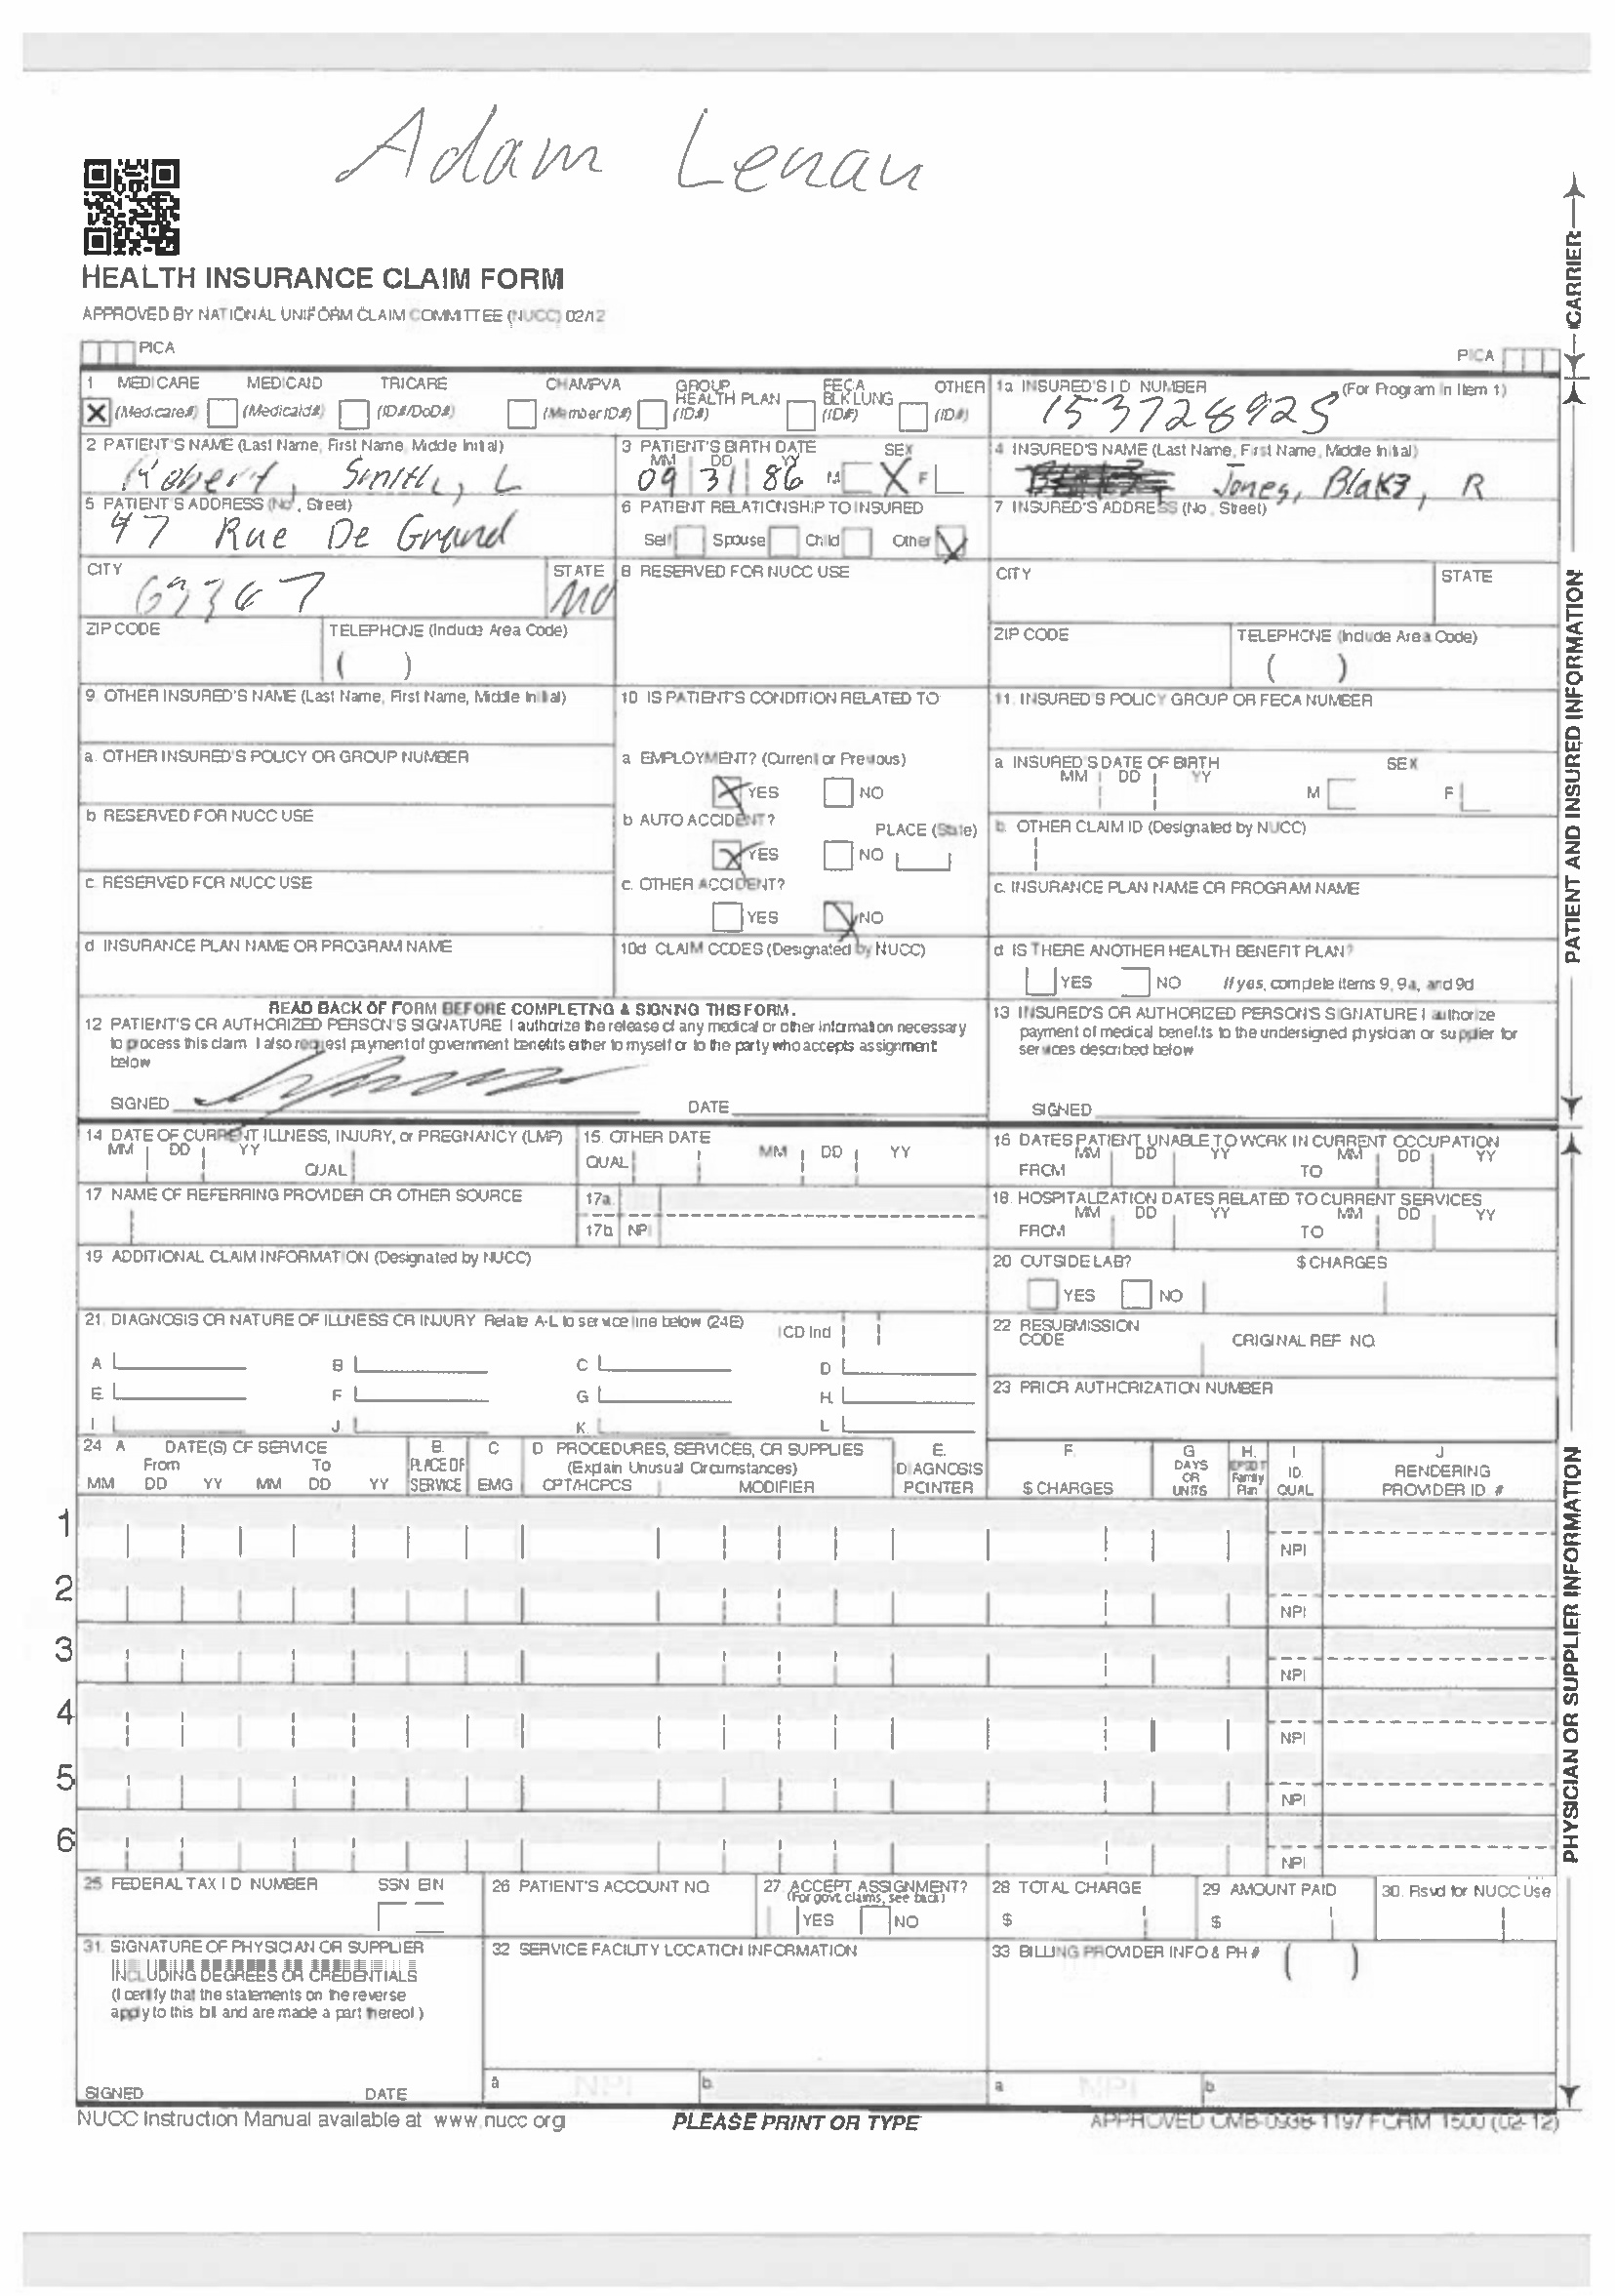 Adam Lenau
HEALTH INSURANCE CLAIM FORM
APPROVED BY NATIONAL UNIFORM CLAIM COMMITTEE (NUCC) 02/12
PICA
PICA
1 MEDICARE MEDICAID TRICARE CHAMPVA GROUP HEALTH PLAN FECA BLK LUNG OTHER
X (Medicare#) (Medicaid#) (ID#/DoD#) (Member ID#) (ID#) (ID#) (ID#)
1a INSURED'S I D NUMBER (For Program in Item 1)
153728925
2 PATIENT'S NAME (Last Name, First Name, Middle Initial)
Robert, Smith, L
3 PATIENT'S BIRTH DATE SEX
MM DD YY
09 31 86 M X F
4 INSURED'S NAME (Last Name, First Name, Middle Initial)
Jones, Blake, R
5 PATIENT'S ADDRESS (No, Street)
47 Rue De Grand
6 PATIENT RELATIONSHIP TO INSURED
Self Spouse Child Other X
7 INSURED'S ADDRESS (No, Street)
CITY STATE
63367 MO
8 RESERVED FOR NUCC USE
CITY STATE
ZIP CODE TELEPHONE (Include Area Code)
( )
ZIP CODE TELEPHONE (Include Area Code)
( )
9. OTHER INSURED'S NAME (Last Name, First Name, Middle Initial)
10 IS PATIENT'S CONDITION RELATED TO
11. INSURED'S POLICY GROUP OR FECA NUMBER
a. OTHER INSURED'S POLICY OR GROUP NUMBER
a EMPLOYMENT? (Current or Previous)
X YES NO
a INSURED'S DATE OF BIRTH SEX
MM DD YY M F
b RESERVED FOR NUCC USE
b AUTO ACCIDENT? PLACE (State)
X YES NO
b. OTHER CLAIM ID (Designated by NUCC)
c. RESERVED FOR NUCC USE
c. OTHER ACCIDENT?
YES X NO
c. INSURANCE PLAN NAME OR PROGRAM NAME
d INSURANCE PLAN NAME OR PROGRAM NAME
10d CLAIM CODES (Designated by NUCC)
d IS THERE ANOTHER HEALTH BENEFIT PLAN?
YES NO If yes, complete items 9, 9a, and 9d
READ BACK OF FORM BEFORE COMPLETING & SIGNING THIS FORM.
12 PATIENT'S OR AUTHORIZED PERSON'S SIGNATURE I authorize the release of any medical or other information necessary
to process this claim I also request payment of government benefits either to myself or to the party who accepts assignment
below
SIGNED DATE
13 INSURED'S OR AUTHORIZED PERSON'S SIGNATURE I authorize
payment of medical benefits to the undersigned physician or supplier for
services described below
SIGNED
14 DATE OF CURRENT ILLNESS, INJURY, or PREGNANCY (LMP)
MM DD YY QUAL
15. OTHER DATE
QUAL MM DD YY
16 DATES PATIENT UNABLE TO WORK IN CURRENT OCCUPATION
MM DD YY MM DD YY
FROM TO
17 NAME OF REFERRING PROVIDER OR OTHER SOURCE
17a.
17b NPI
18. HOSPITALIZATION DATES RELATED TO CURRENT SERVICES
MM DD YY MM DD YY
FROM TO
19 ADDITIONAL CLAIM INFORMATION (Designated by NUCC)
20 OUTSIDE LAB? $ CHARGES
YES NO
21. DIAGNOSIS OR NATURE OF ILLNESS OR INJURY Relate A-L to service line below (24E) ICD Ind
A B C D
E F G H.
I J K. L
22 RESUBMISSION CODE ORIGINAL REF NO.
23 PRIOR AUTHORIZATION NUMBER
24 A DATE(S) OF SERVICE B. C D PROCEDURES, SERVICES, OR SUPPLIES E. F. G H. I J
From To PLACE OF (Explain Unusual Circumstances) DIAGNOSIS DAYS OR UNITS EPSDT Family Plan ID. RENDERING
MM DD YY MM DD YY SERVICE EMG CPT/HCPCS MODIFIER POINTER $ CHARGES QUAL PROVIDER ID. #
1 NPI
2 NPI
3 NPI
4 NPI
5 NPI
6 NPI
25 FEDERAL TAX I D NUMBER SSN EIN
26 PATIENT'S ACCOUNT NO
27 ACCEPT ASSIGNMENT?
(For govt. claims, see back)
YES NO
28 TOTAL CHARGE
$
29 AMOUNT PAID
$
30. Rsvd for NUCC Use
31. SIGNATURE OF PHYSICIAN OR SUPPLIER
INCLUDING DEGREES OR CREDENTIALS
(I certify that the statements on the reverse
apply to this bill and are made a part thereof.)
SIGNED DATE
32 SERVICE FACILITY LOCATION INFORMATION
a NPI b.
33 BILLING PROVIDER INFO & PH # ( )
a NPI b.
NUCC Instruction Manual available at www.nucc org
PLEASE PRINT OR TYPE
APPROVED OMB-0938-1197 FORM 1500 (02-12)
CARRIER
PATIENT AND INSURED INFORMATION
PHYSICIAN OR SUPPLIER INFORMATION